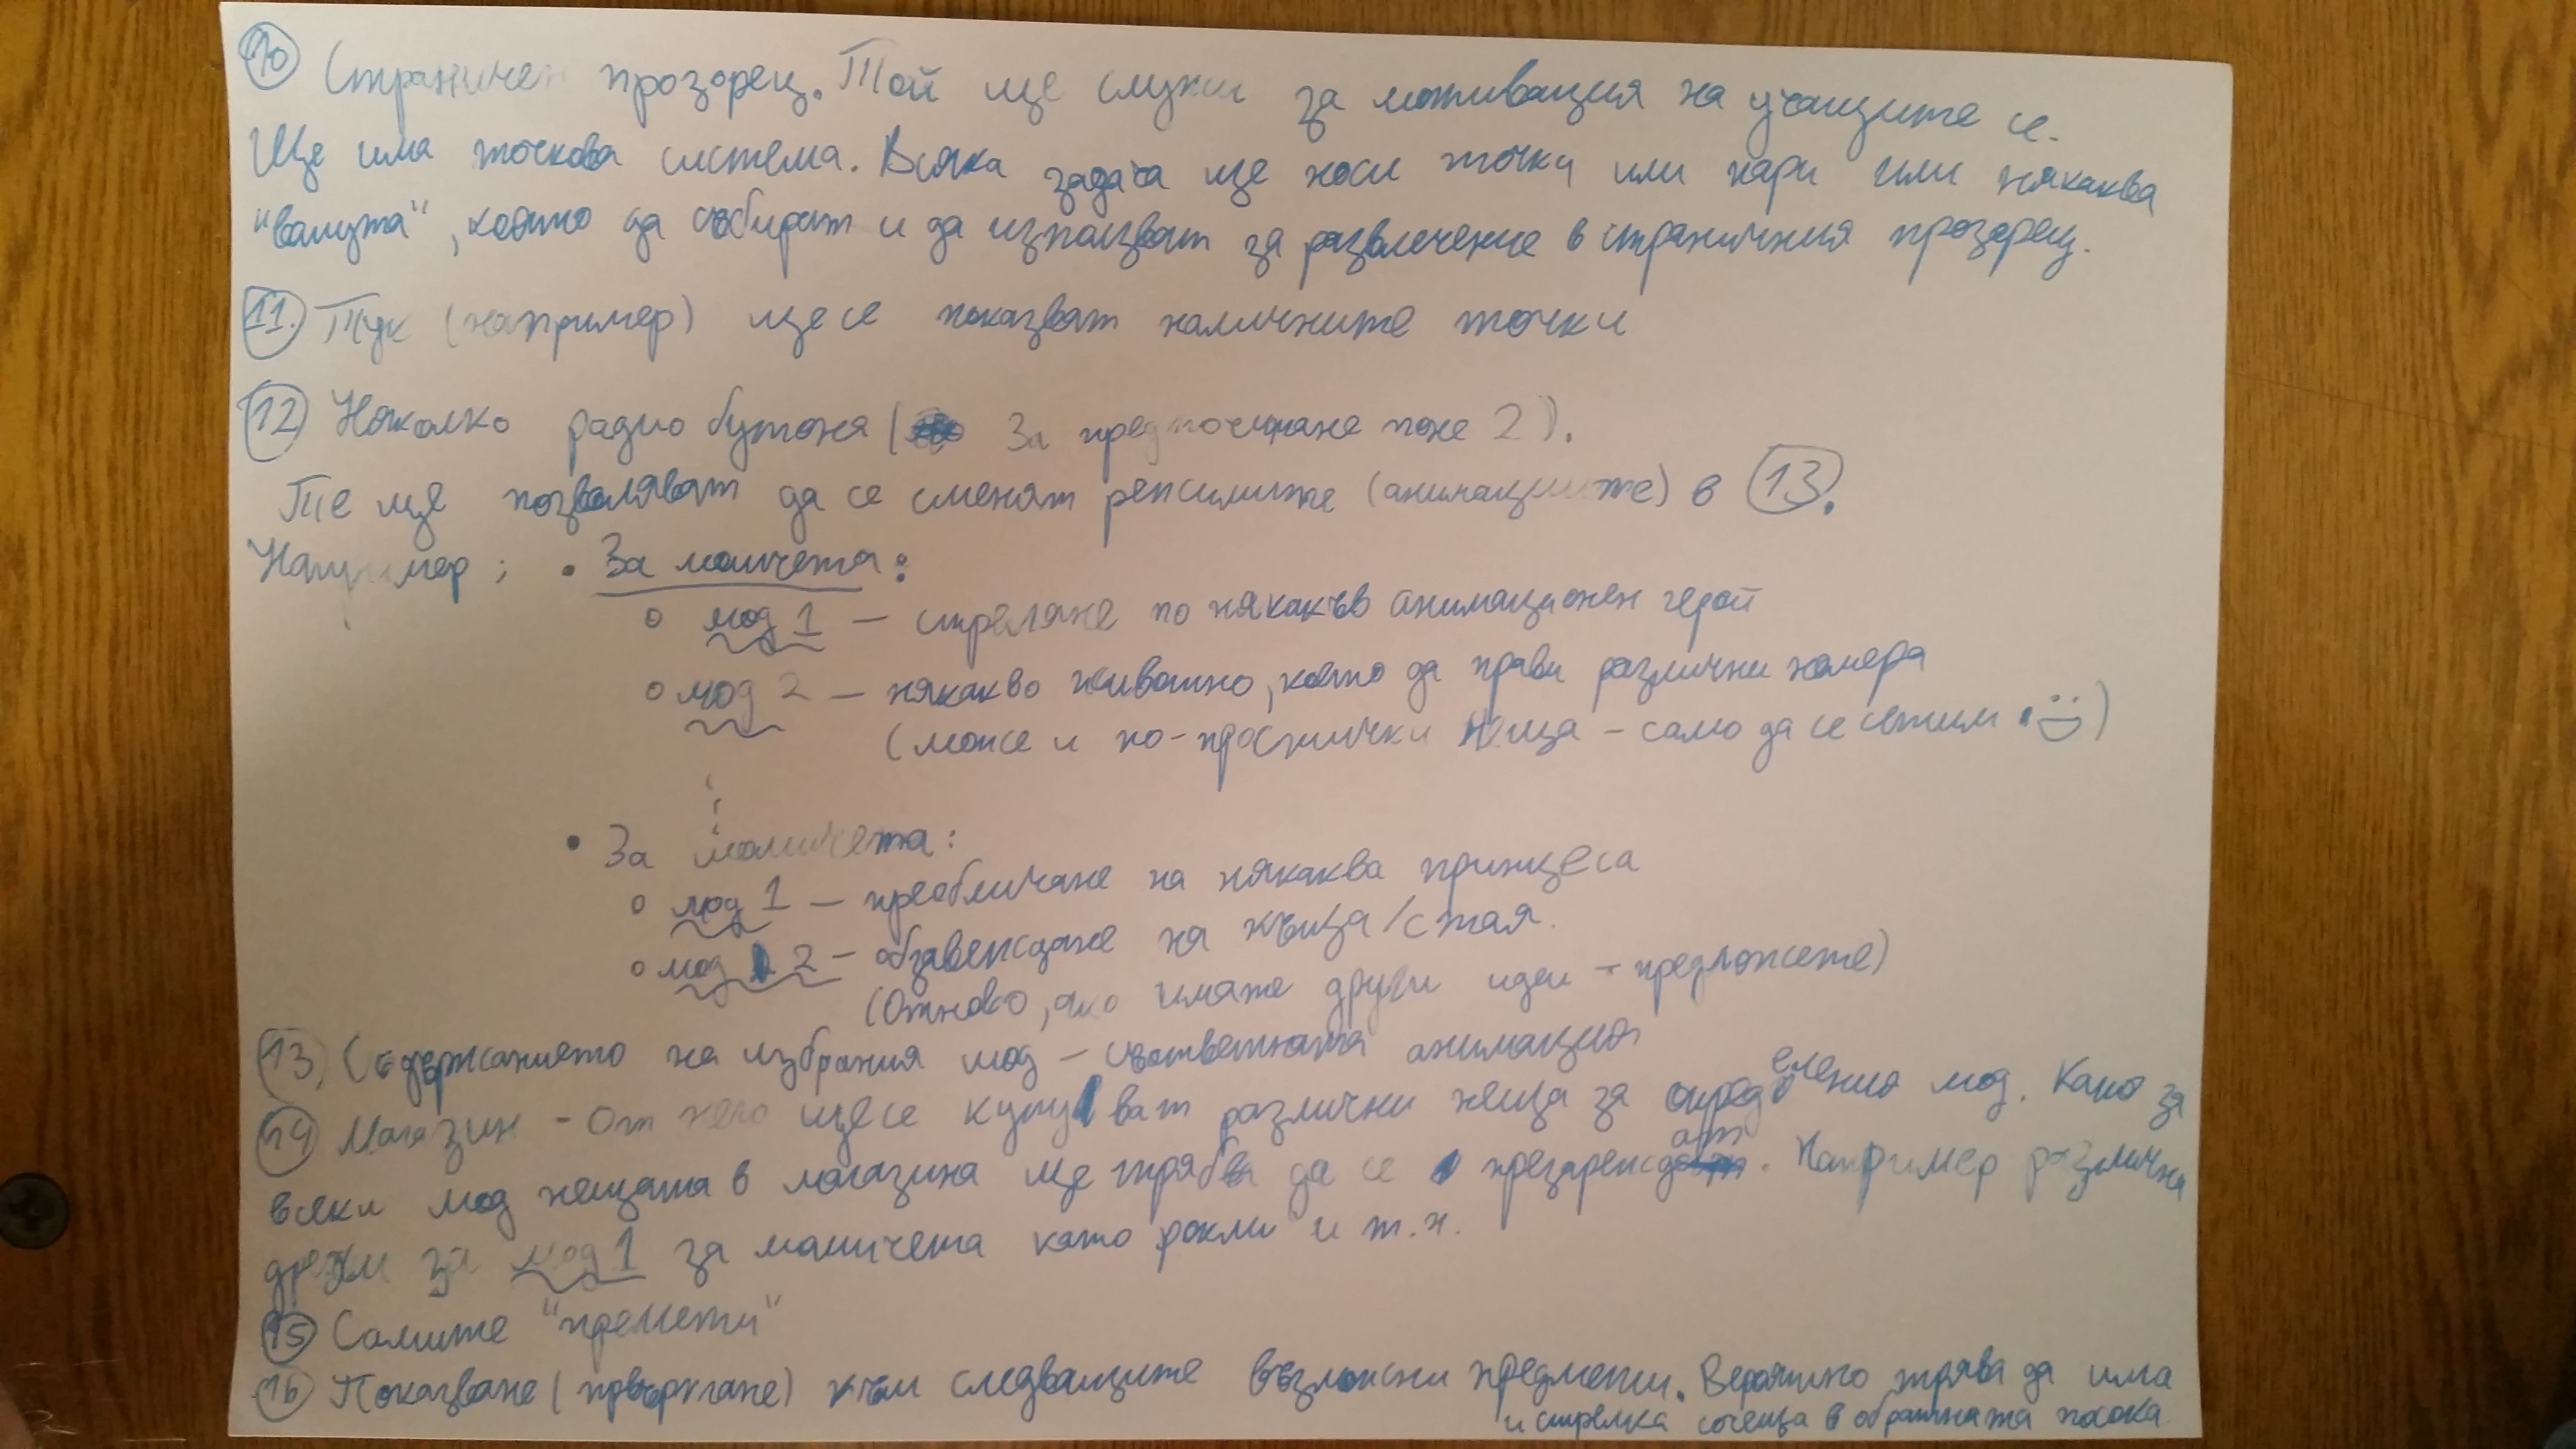 10 Страничен прозорец. Той ще служи за мотивация на учащите се.
Ще има точкова система. Всяка задача ще носи точки или пари или някаква
"валута", която да събират и да използват за развлечение в страничния прозорец.
11. Тук (например) ще се показват наличните точки
12 Няколко радио бутона ( За предпочитане поне 2).
Те ще позволяват да се сменят режимите (анимациите) в 13.
Например: • За момчета:
○ мод 1 – стреляне по някакъв анимационен герой
○ мод 2 – някакво животно, което да прави различни номера
(може и по-простички неща – само да се сетим :))
• За момичета:
○ мод 1 – преобличане на някаква принцеса
○ мод 2 – обзавеждане на къща/стая.
(Отново, ако имате други идеи – предложете)
13. Съдържанието на избрания мод – съответната анимация
14 Магазин – От него ще се купуват различни неща за определения мод. Като за
всеки мод нещата в магазина ще трябва да се презареждат. Например различни
дрехи за мод 1 за момичета като рокли и т.н.
15 Самите "предмети"
16 Показване (превъртане) към следващите възможни предмети. Вероятно трява да има
и стрелка сочеща в обратната посока